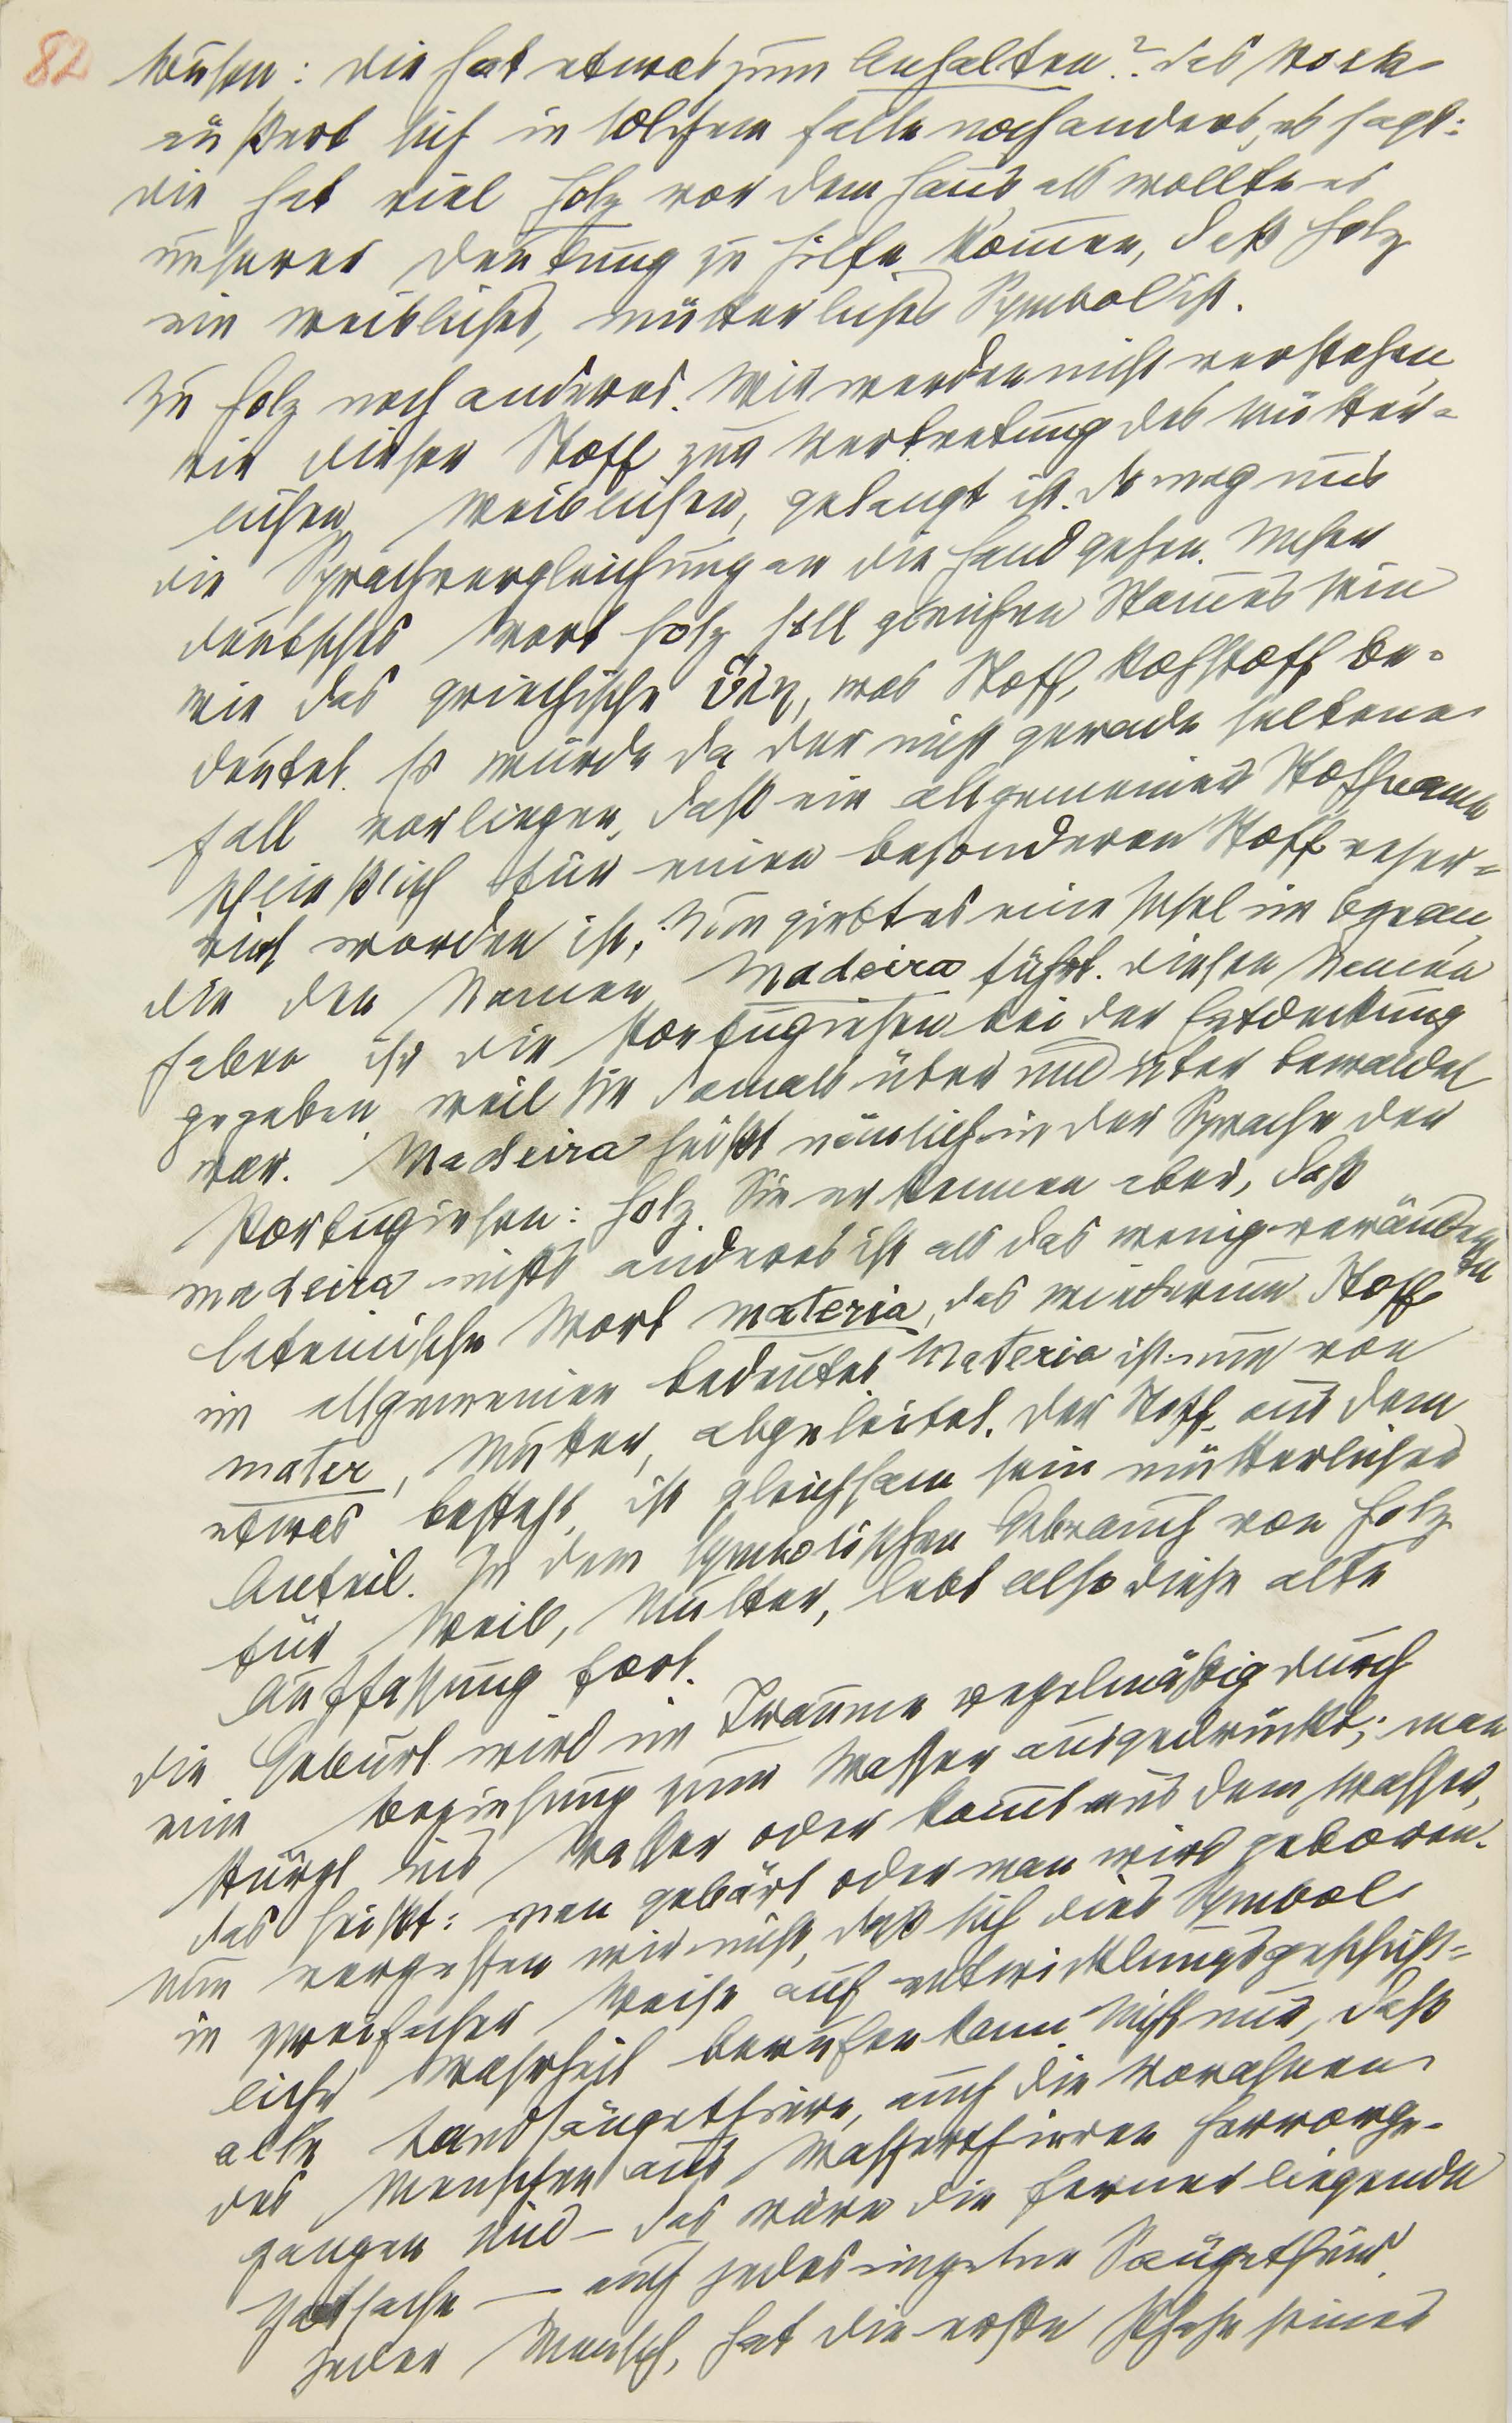 82
Busen: die hat etwas zum Anhalten? Das Volk
äußert sich in solchem Falle noch anders, es sagt:
die hat viel Holz vor dem Haus, als wollte es
unserer Deutung zu Hilfe kommen, daß Holz
ein weibliches, mütterliches Symbol ist.
Zu Holz noch anderes. Wir werden nicht verstehen,
wie dieser Stoff zur Vertretung des Mütter=
lichen, Weiblichen, gelangt ist. Da mag uns
die Sprachvergleichung an die Hand gehen. Unser
deutsches Wort Holz soll gleichen Stammes sein
wie das griechische ὕλη, was Stoff, Rohstoff be=
deutet. Es würde da der nicht gerade seltene
Fall vorliegen, daß ein allgemeiner Stoffname
schließlich für einen besonderen Stoff reser=
viert worden ist. Nun giebt es eine Insel im Ozean,
die den Namen Madeira führt. Diesen Namen
haben ihr die Portugiesen bei der Entdeckung
gegeben, weil sie damals über und über bewaldet
war. Madeira heißt nämlich in der Sprache der
Portugiesen: Holz. Sie erkennen aber, daß
madeira nichts anderes ist als das wenig veränderte
lateinische Wort materia, das wiederum Stoff
im allgemeinen bedeutet. Materia ist nun von
mater, Mutter, abgeleitet. Der Stoff, aus dem
etwas besteht, ist gleichsam sein mütterlicher
Anteil. In dem symbolischen Gebrauch von Holz
für Weib, Mutter, lebt also diese alte
Auffassung fort.
Die Geburt wird im Traume regelmäßig durch
eine Beziehung zum Wasser ausgedrückt; man
stürzt ins Wasser oder kommt aus dem Wasser,
das heißt: man gebärt oder man wird geboren.
Nun vergessen wir nicht, daß sich dies Symbol
in zweifacher Weise auf entwicklungsgeschicht=
liche Wahrheit berufen kann. Nicht nur, daß
alle Landsäugethiere, auch die Vorahnen
des Menschen aus Wasserthieren hervorge=
gangen sind – das wäre die ferner liegende
Tatsache – auch jedes einzelne Säugethier,
jeder Mensch, hat die erste Phase seiner